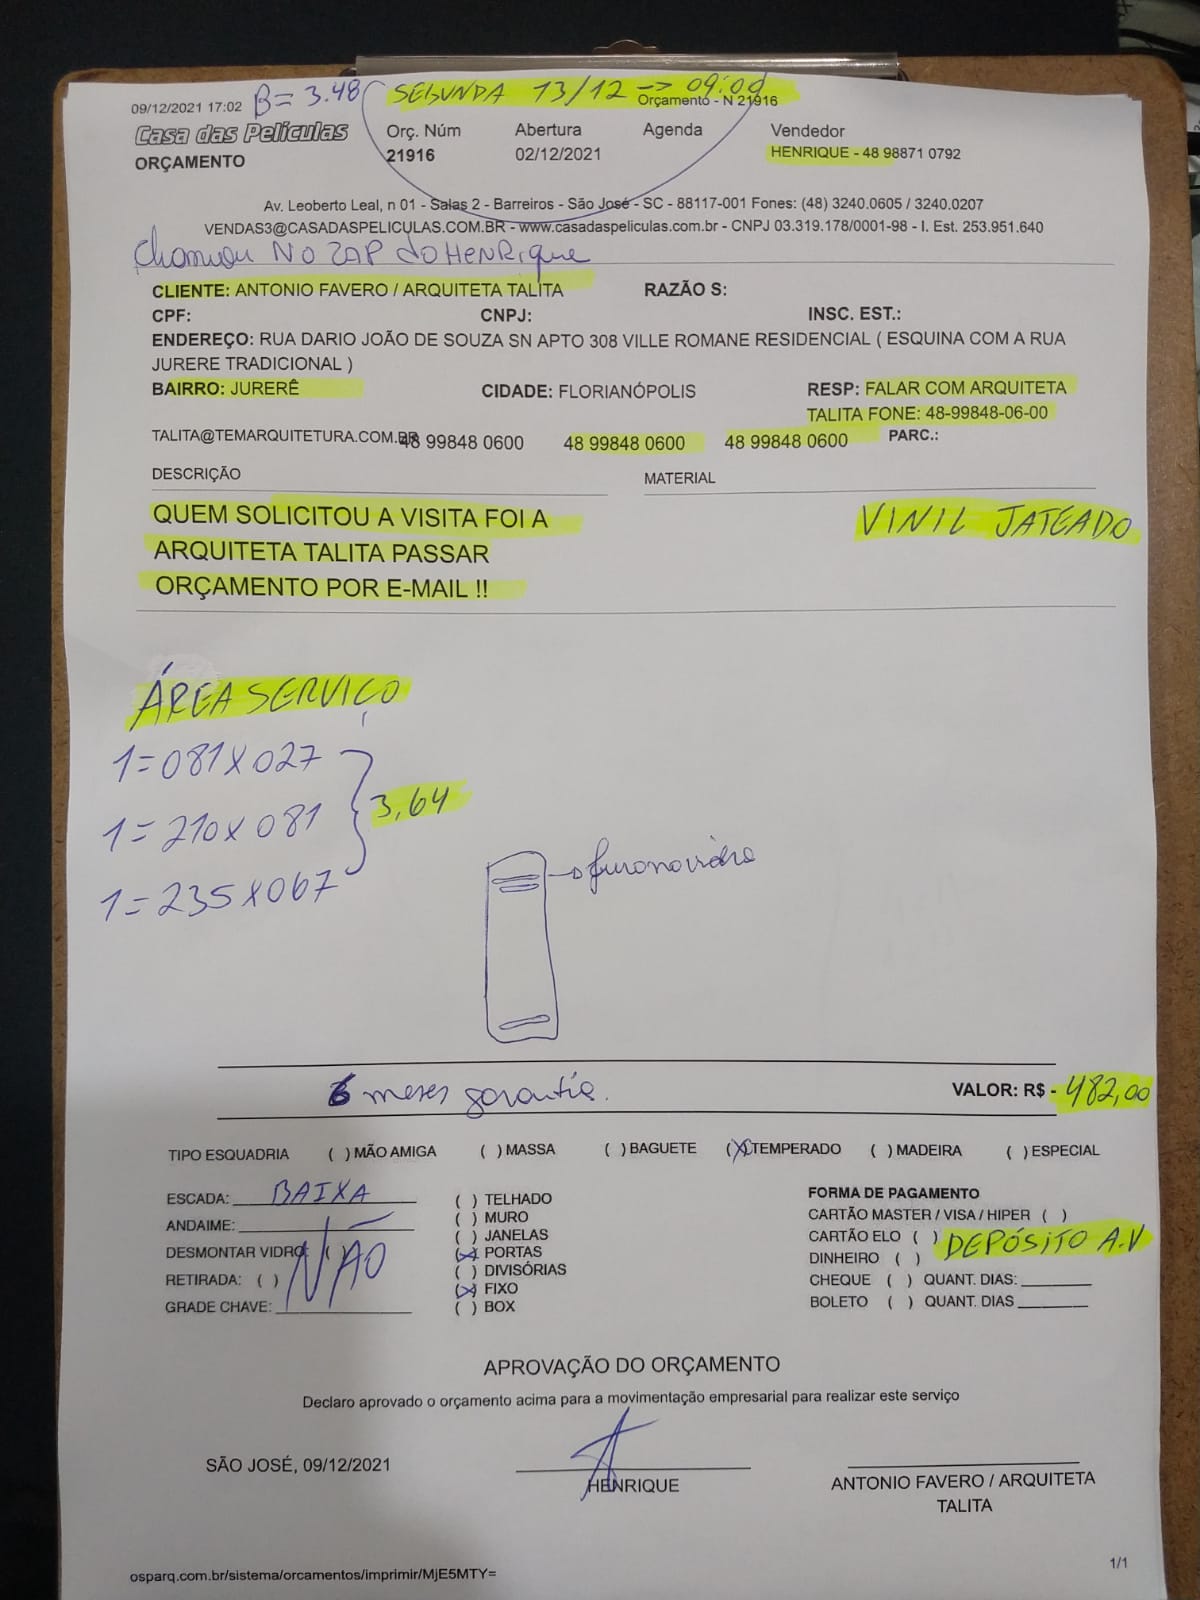 09/12/2021 17:02 B = 3.48 SEGUNDA 13/12 -> 09:00
Orçamento - N 21916
Casa das Películas
ORÇAMENTO
Orç. Núm Abertura Agenda Vendedor
21916 02/12/2021 HENRIQUE - 48 98871 0792
Av. Leoberto Leal, n 01 - Salas 2 - Barreiros - São José - SC - 88117-001 Fones: (48) 3240.0605 / 3240.0207
VENDAS3@CASADASPELICULAS.COM.BR - www.casadaspeliculas.com.br - CNPJ 03.319.178/0001-98 - I. Est. 253.951.640
Chamou NO ZAP do HENRique
CLIENTE: ANTONIO FAVERO / ARQUITETA TALITA RAZÃO S:
CPF: CNPJ: INSC. EST.:
ENDEREÇO: RUA DARIO JOÃO DE SOUZA SN APTO 308 VILLE ROMANE RESIDENCIAL ( ESQUINA COM A RUA
JURERE TRADICIONAL )
BAIRRO: JURERÊ CIDADE: FLORIANÓPOLIS RESP: FALAR COM ARQUITETA
TALITA FONE: 48-99848-06-00
TALITA@TEMARQUITETURA.COM.BR 48 99848 0600 48 99848 0600 48 99848 0600 PARC.:
DESCRIÇÃO MATERIAL
QUEM SOLICITOU A VISITA FOI A VINIL JATEADO
ARQUITETA TALITA PASSAR
ORÇAMENTO POR E-MAIL !!
ÁREA SERVIÇO
1=081X027
1=210X081 3,64
1=235X067
furo no vidro
6 meses garantia. VALOR: R$ - 482,00
TIPO ESQUADRIA ( ) MÃO AMIGA ( ) MASSA ( ) BAGUETE (X) TEMPERADO ( ) MADEIRA ( ) ESPECIAL
ESCADA: BAIXA ( ) TELHADO FORMA DE PAGAMENTO
ANDAIME: ( ) MURO CARTÃO MASTER / VISA / HIPER ( )
DESMONTAR VIDRO: ( ) NÃO ( ) JANELAS CARTÃO ELO ( ) DEPÓSITO A.V
RETIRADA: ( ) (X) PORTAS DINHEIRO ( )
GRADE CHAVE: ( ) DIVISÓRIAS CHEQUE ( ) QUANT. DIAS:
(X) FIXO BOLETO ( ) QUANT. DIAS
( ) BOX
APROVAÇÃO DO ORÇAMENTO
Declaro aprovado o orçamento acima para a movimentação empresarial para realizar este serviço
SÃO JOSÉ, 09/12/2021
HENRIQUE ANTONIO FAVERO / ARQUITETA
TALITA
osparq.com.br/sistema/orcamentos/imprimir/MjE5MTY= 1/1